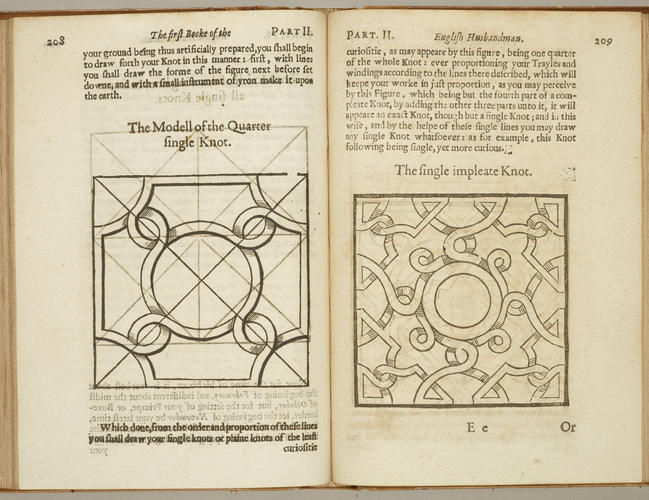 208 The first Booke of the PART II.
your ground being thus artificially prepared, you shall begin
to draw forth your Knot in this manner: first, with lines
you shall draw the forme of the figure next before set
downe, and with a small instrument of yron make it upon
the earth.
The Modell of the Quarter
single Knot.
Which done, from the order and proportion of these lines
you shall draw your single knots or plaine knots of the least
curiositie
PART. II. English Husbandman. 209
curiositie, as may appeare by this figure, being one quarter
of the whole Knot: ever proportioning your Trayles and
windings according to the lines there described, which will
keepe your worke in just proportion, as you may perceive
by this Figure, which being but the fourth part of a com-
pleate Knot, by adding the other three parts unto it, it will
appeare an exact Knot, though but a single Knot; and in this
wise, and by the helpe of these single lines you may draw
any single Knot whatsoever: as for example, this Knot
following being single, yet more curious.
The single impleate Knot.
E e Or